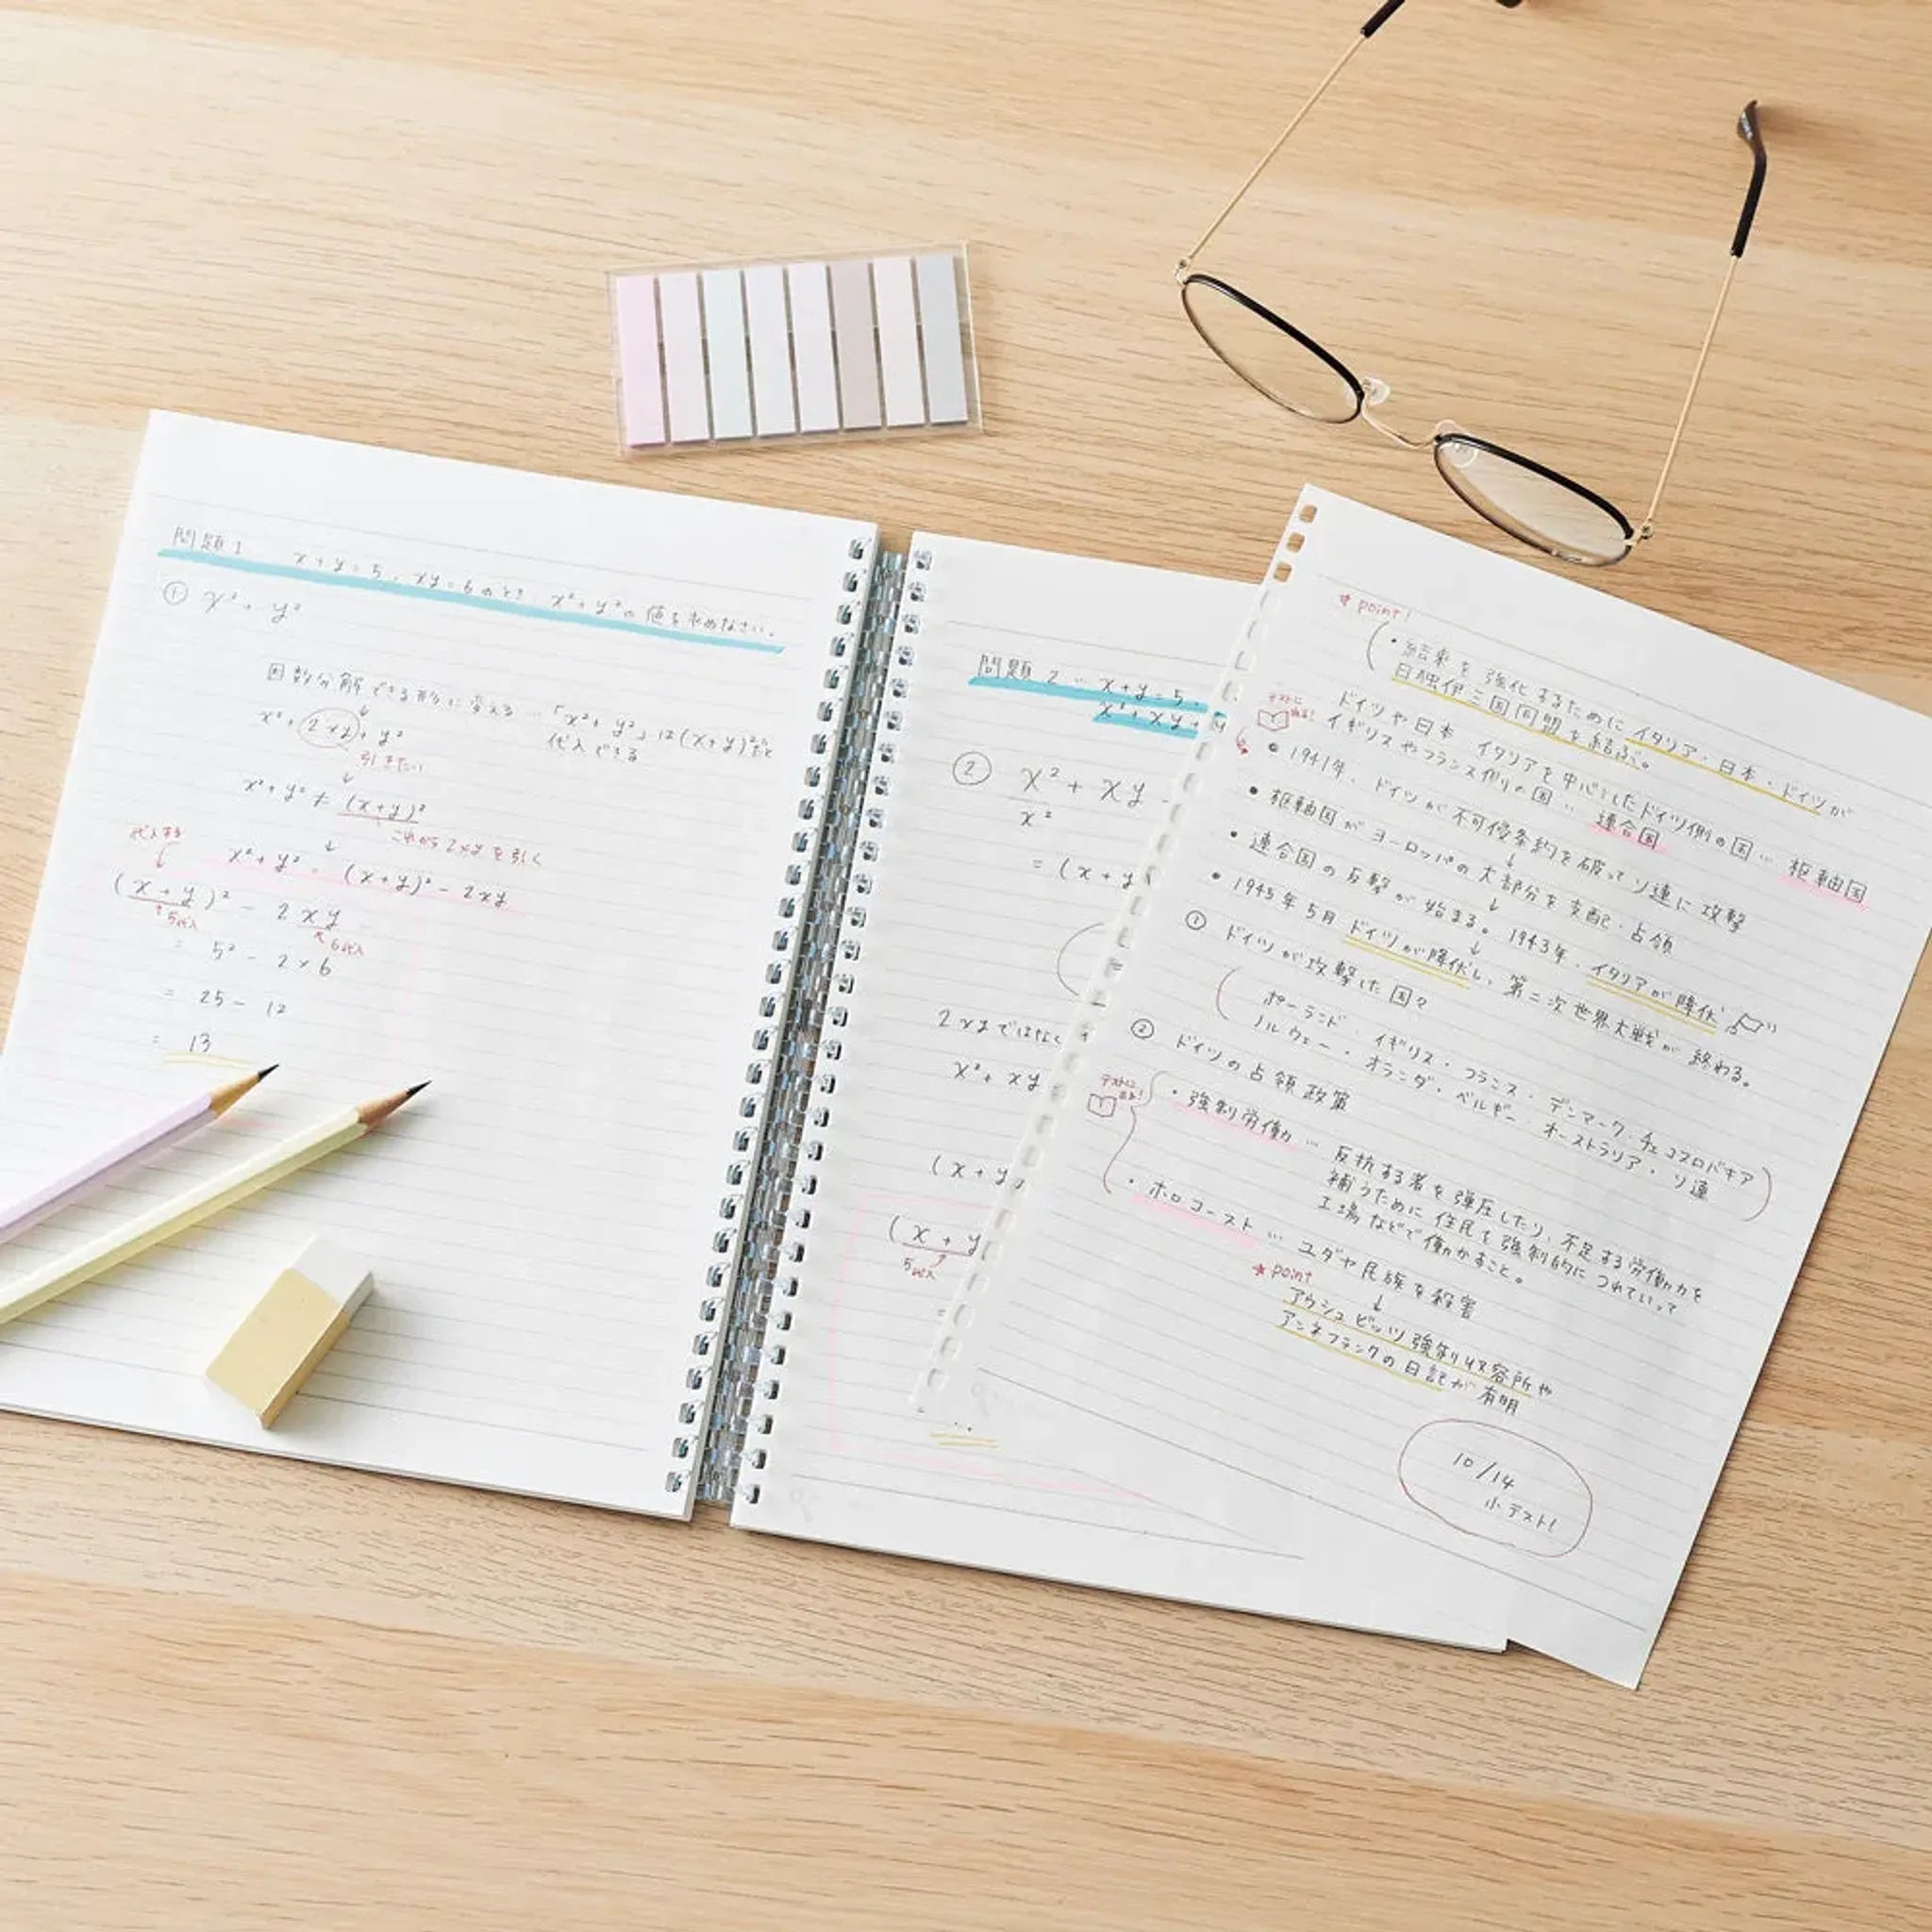 問題1 x+y=5, xy=6のとき x²+y²の値を求めなさい。
① x²+y²
因数分解できる形に変える … 「x²+y²」は(x+y)²だと
代入できる
x²+2xy+y²
引きたい
x²+y² ≠ (x+y)²
これから2xyを引く
代入する
x²+y² = (x+y)²-2xy
(x+y)² - 2xy
5代入
6代入
= 5² - 2×6
= 25 - 12
= 13
問題2 … x+y=5,
x²+xy+y
② x²+xy
x²
= (x+y
2xyではなく
x²+xy
(x+y
(x+y
5代入
=
★point!
・結束を強化するためにイタリア・日本・ドイツが
日独伊三国同盟を結ぶ。
テストに
出る!
ドイツや日本 イタリアを中心としたドイツ側の国 … 枢軸国
イギリスやフランス側の国 … 連合国
・1941年、ドイツが不可侵条約を破ってソ連に攻撃
↓
・枢軸国がヨーロッパの大部分を支配・占領
↓
・連合国の反撃が始まる。1943年、イタリアが降伏
↓
・1945年5月ドイツが降伏し、第二次世界大戦が終わる。
① ドイツが攻撃した国?
ポーランド・イギリス・フランス・デンマーク・チェコスロバキア
ノルウェー・オランダ・ベルギー・オーストラリア・ソ連
② ドイツの占領政策
テストに
出る!
・強制労働 … 反抗する者を弾圧したり、不足する労働力を
補うために住民を強制的につれていって
工場などで働かすこと。
・ホロコースト … ユダヤ民族を殺害
★point
↓
アウシュビッツ強制収容所や
アンネフランクの日記が有明
10/14
小テスト!